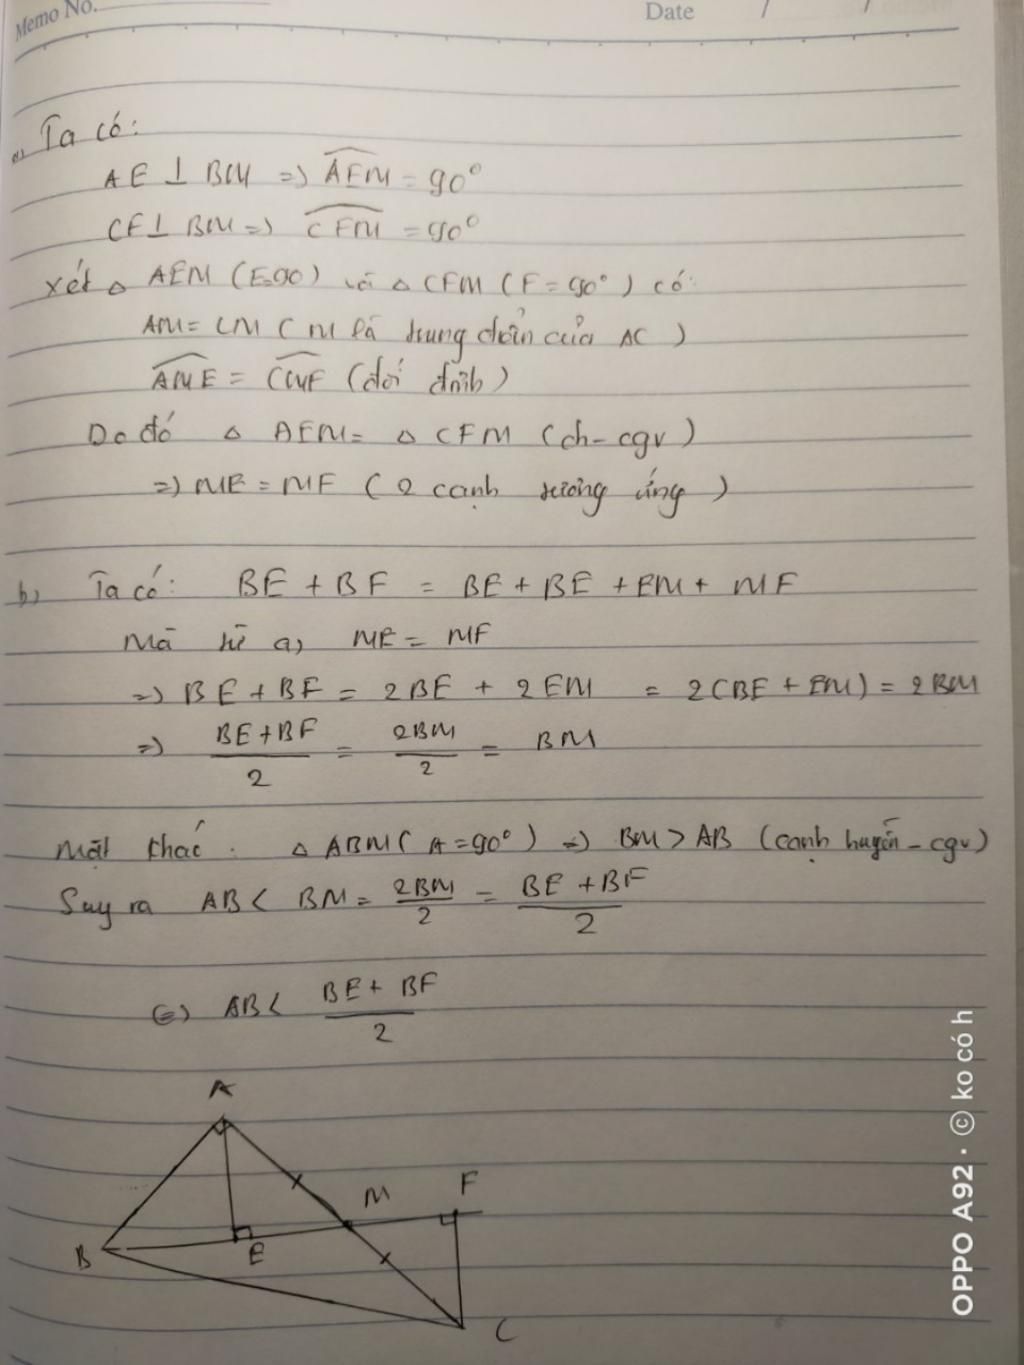 Memo No.
Date / /
a, Ta có:
AE ⊥ BM => AEM = 90°
CF ⊥ BM => CFM = 90°
xét △ AEM (E=90) và △ CFM (F = 90°) có:
AM = CM (M là trung điểm của AC)
AME = CMF (đối đỉnh)
Do đó △ AEM = △ CFM (ch-cgv)
=> ME = MF (2 cạnh tương ứng)
b, Ta có: BE + BF = BE + BE + EM + MF
Mà từ a, ME = MF
=> BE + BF = 2BE + 2EM = 2(BE + EM) = 2BM
=> BE+BF/2 = 2BM/2 = BM
Mặt khác: △ ABM (A = 90°) => BM > AB (cạnh huyền - cgv)
Suy ra AB < BM = 2BM/2 = BE + BF/2
(=) AB < BE + BF/2
A
M
F
B
E
C
OPPO A92 · © ko có h